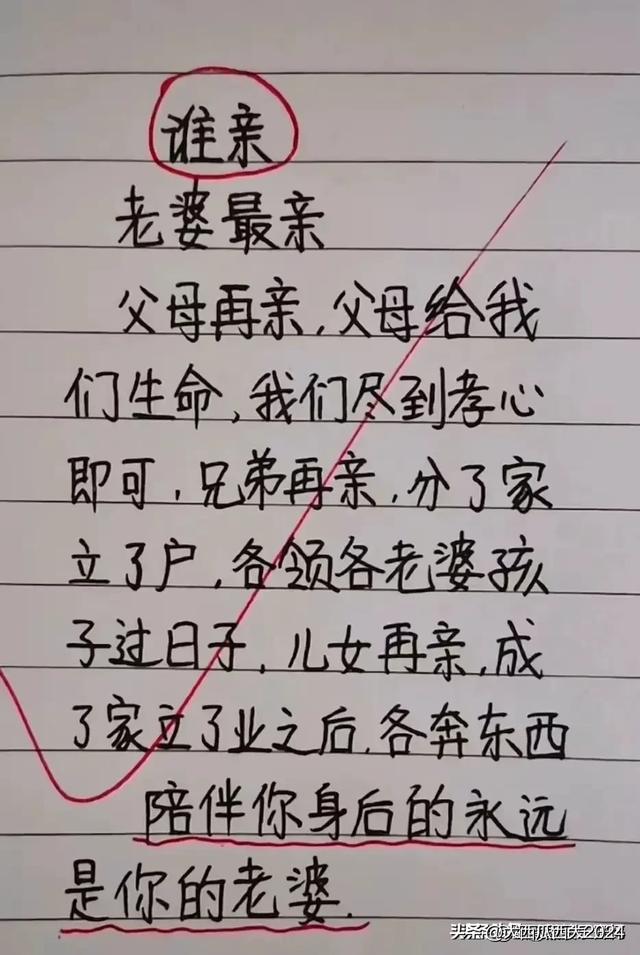 谁亲
老婆最亲
父母再亲,父母给我
们生命,我们尽到孝心
即可,兄弟再亲,分了家
立了户,各领各老婆孩
子过日子,儿女再亲,成
了家立了业之后.各奔东西
陪伴你身后的永远
是你的老婆.